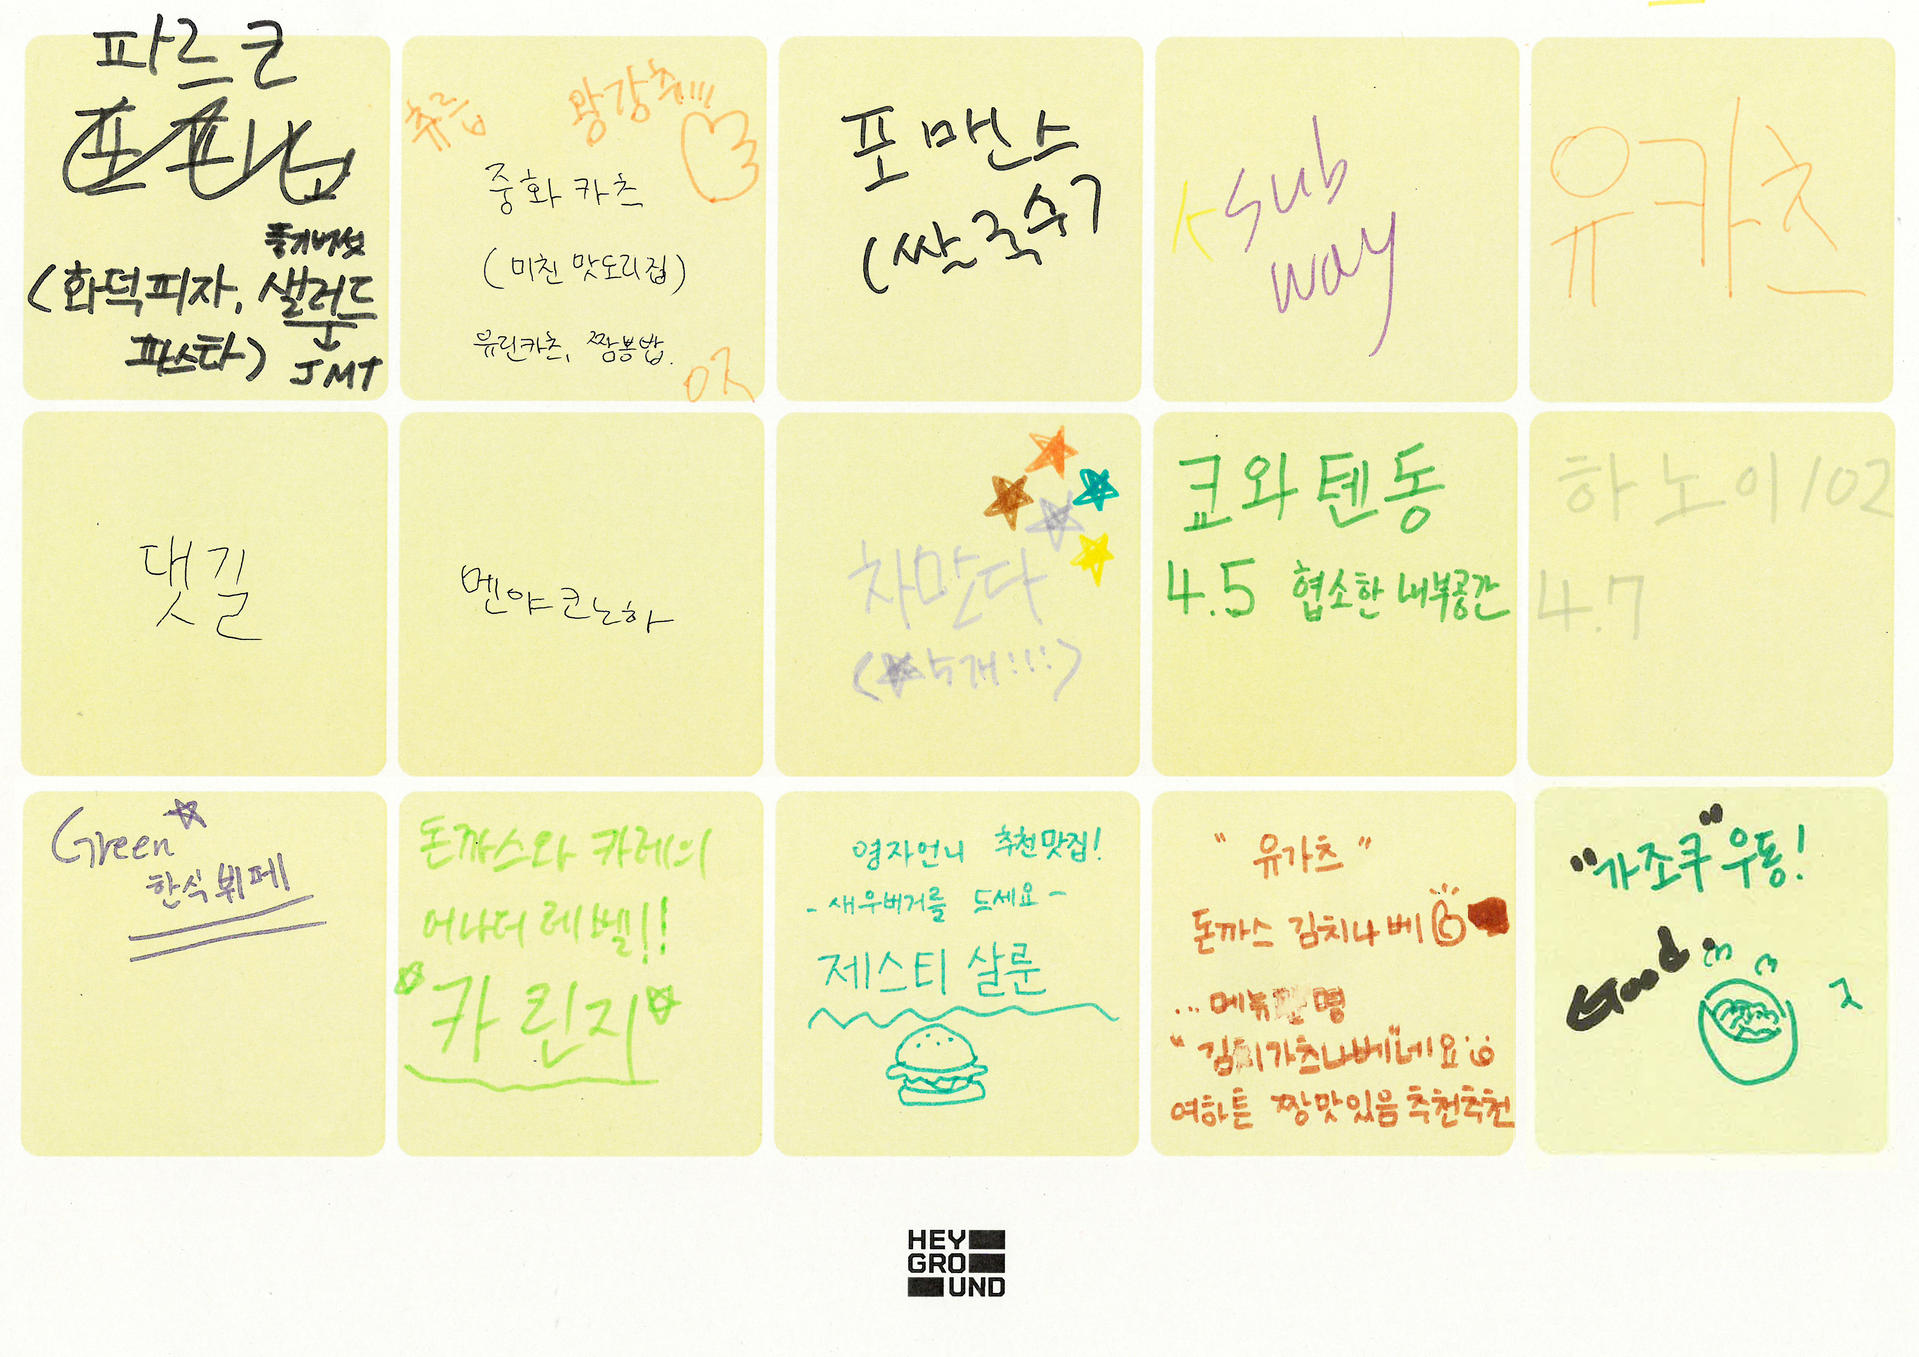 파르코
(화덕피자,
풍기버섯
샐러드
파스타)
JMT
츄릅
왕강추!!!
중화 카츠
(미친 맛도리집)
유린카츠, 짬뽕밥.
포 맨스
(쌀국수)
Sub
way
유카츠
댓길
멘야코노하
차만다
쿄와 텐동
4.5 협소한 내부공간
하노이102
4.7
Green
한식 뷔페
돈까스와 카레의
어나더 레벨!!
카린지
영자언니 추천맛집!
- 새우버거를 드세요 -
제스티 살룬
"유가츠"
돈까스 김치나베
... 메뉴판명
"김치가츠나베"네요
여하튼 짱맛있음 추천추천
"가조쿠"우동!
Good
HEY
GRO
UND